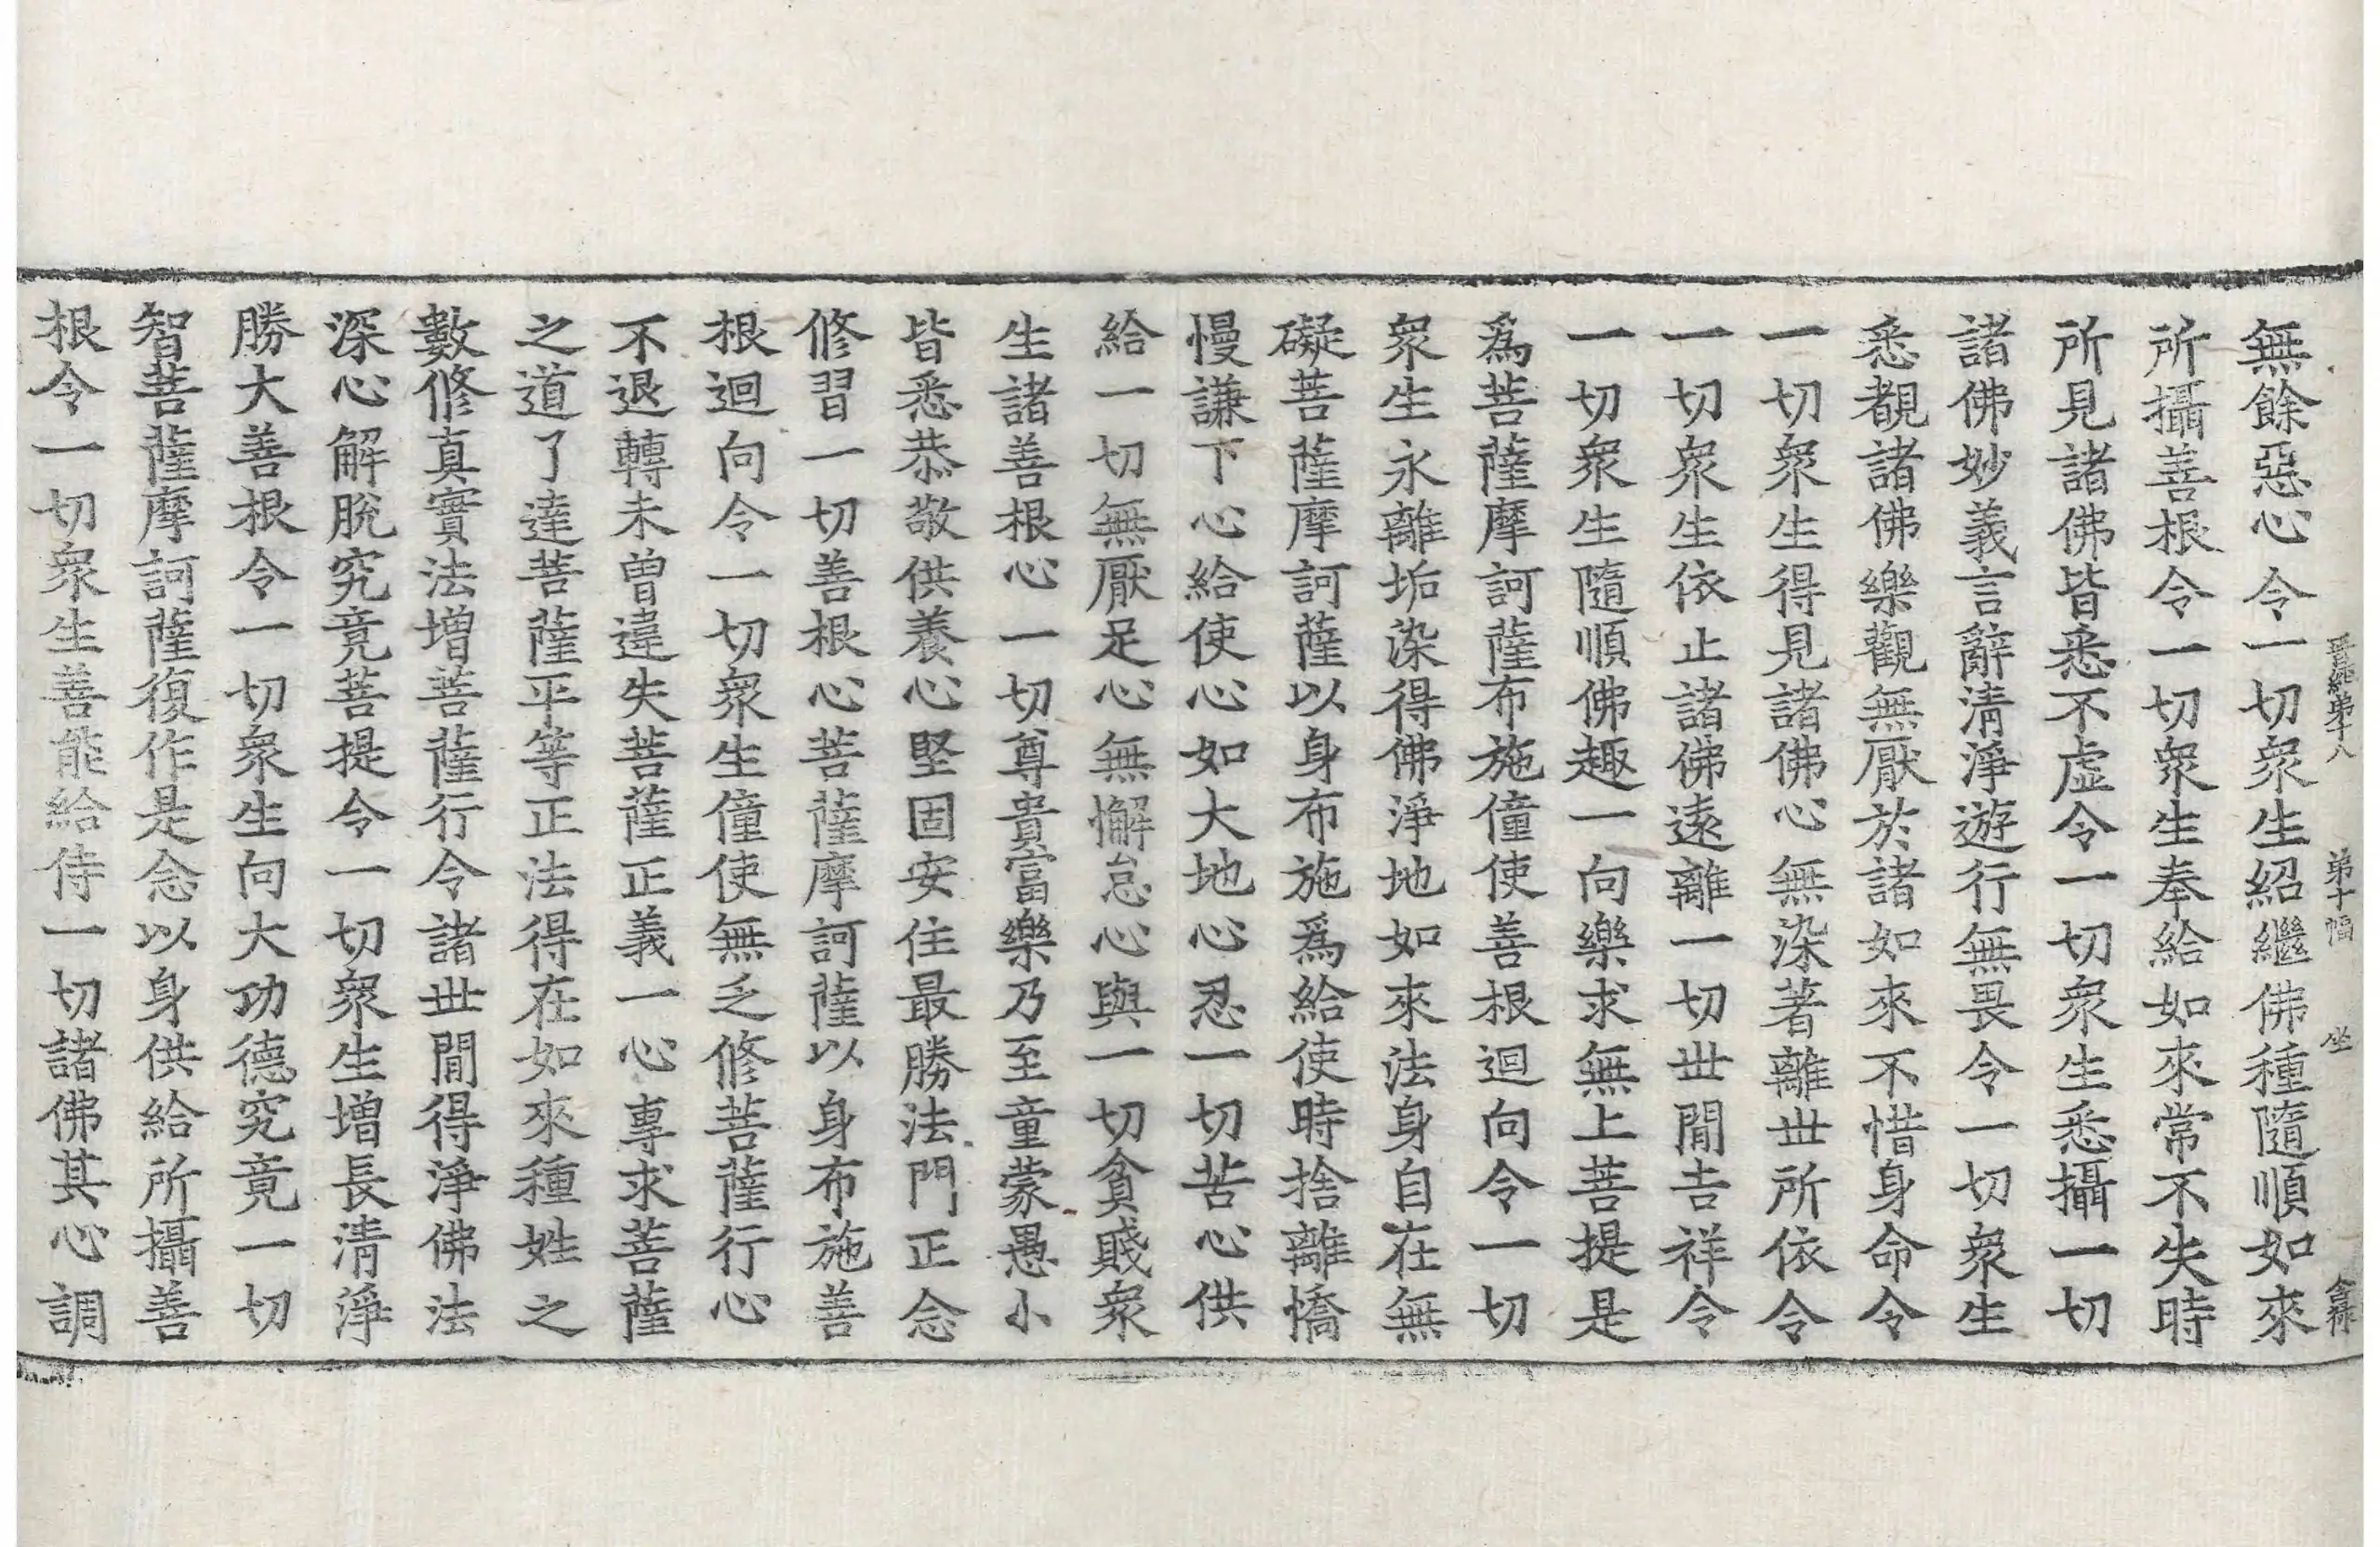 晋經第十八 第十幅 坐 舍祿
無餘惡心令一切衆生紹繼佛種隨順如來
所攝善根令一切衆生奉給如來常不失時
所見諸佛皆悉不虛令一切衆生悉攝一切
諸佛妙義言辭清淨遊行無畏令一切衆生
悉覩諸佛樂觀無厭於諸如來不惜身命令
一切衆生得見諸佛心無染著離世所依令
一切衆生依止諸佛遠離一切世閒吉祥令
一切衆生隨順佛趣一向樂求無上菩提是
爲菩薩摩訶薩布施僮使善根迴向令一切
衆生永離垢染得佛淨地如來法身自在無
礙菩薩摩訶薩以身布施爲給使時捨離憍
慢謙下心給使心如大地心忍一切苦心供
給一切無厭足心無懈怠心與一切貧賤衆
生諸善根心一切尊貴富樂乃至童蒙愚小
皆悉恭敬供養心堅固安住最勝法門正念
修習一切善根心菩薩摩訶薩以身布施善
根迴向令一切衆生僮使無乏修菩薩行心
不退轉未曾違失菩薩正義一心專求菩薩
之道了達菩薩平等正法得在如來種姓之
數修真實法增菩薩行令諸世閒得淨佛法
深心解脫究竟菩提令一切衆生增長清淨
勝大善根令一切衆生向大功德究竟一切
智菩薩摩訶薩復作是念以身供給所攝善
根令一切衆生善能給侍一切諸佛其心調